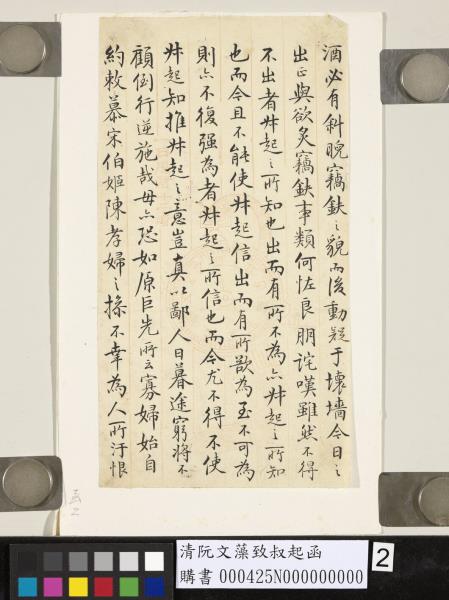 酒必有斜睨竊鈇之貌而後動疑于壞墻今日之
出正與欲炙竊鈇事類何怪良朋詫嘆雖然不得
不出者叔起之所知也出而有所不為亦叔起之所知
也而今且不能使叔起信出而有所歆為至不可為
則亦不復強為者叔起之所信也而今尤不得不使
叔起知推叔起之意豈真以鄙人日暮途窮將不
顧倒行逆施哉毋亦恐如原巨先所云寡婦始自
約敕慕宋伯姬陳孝婦之操不幸為人所汙恨
五 2
清阮文藻致叔起函
購書 000425N000000000
2